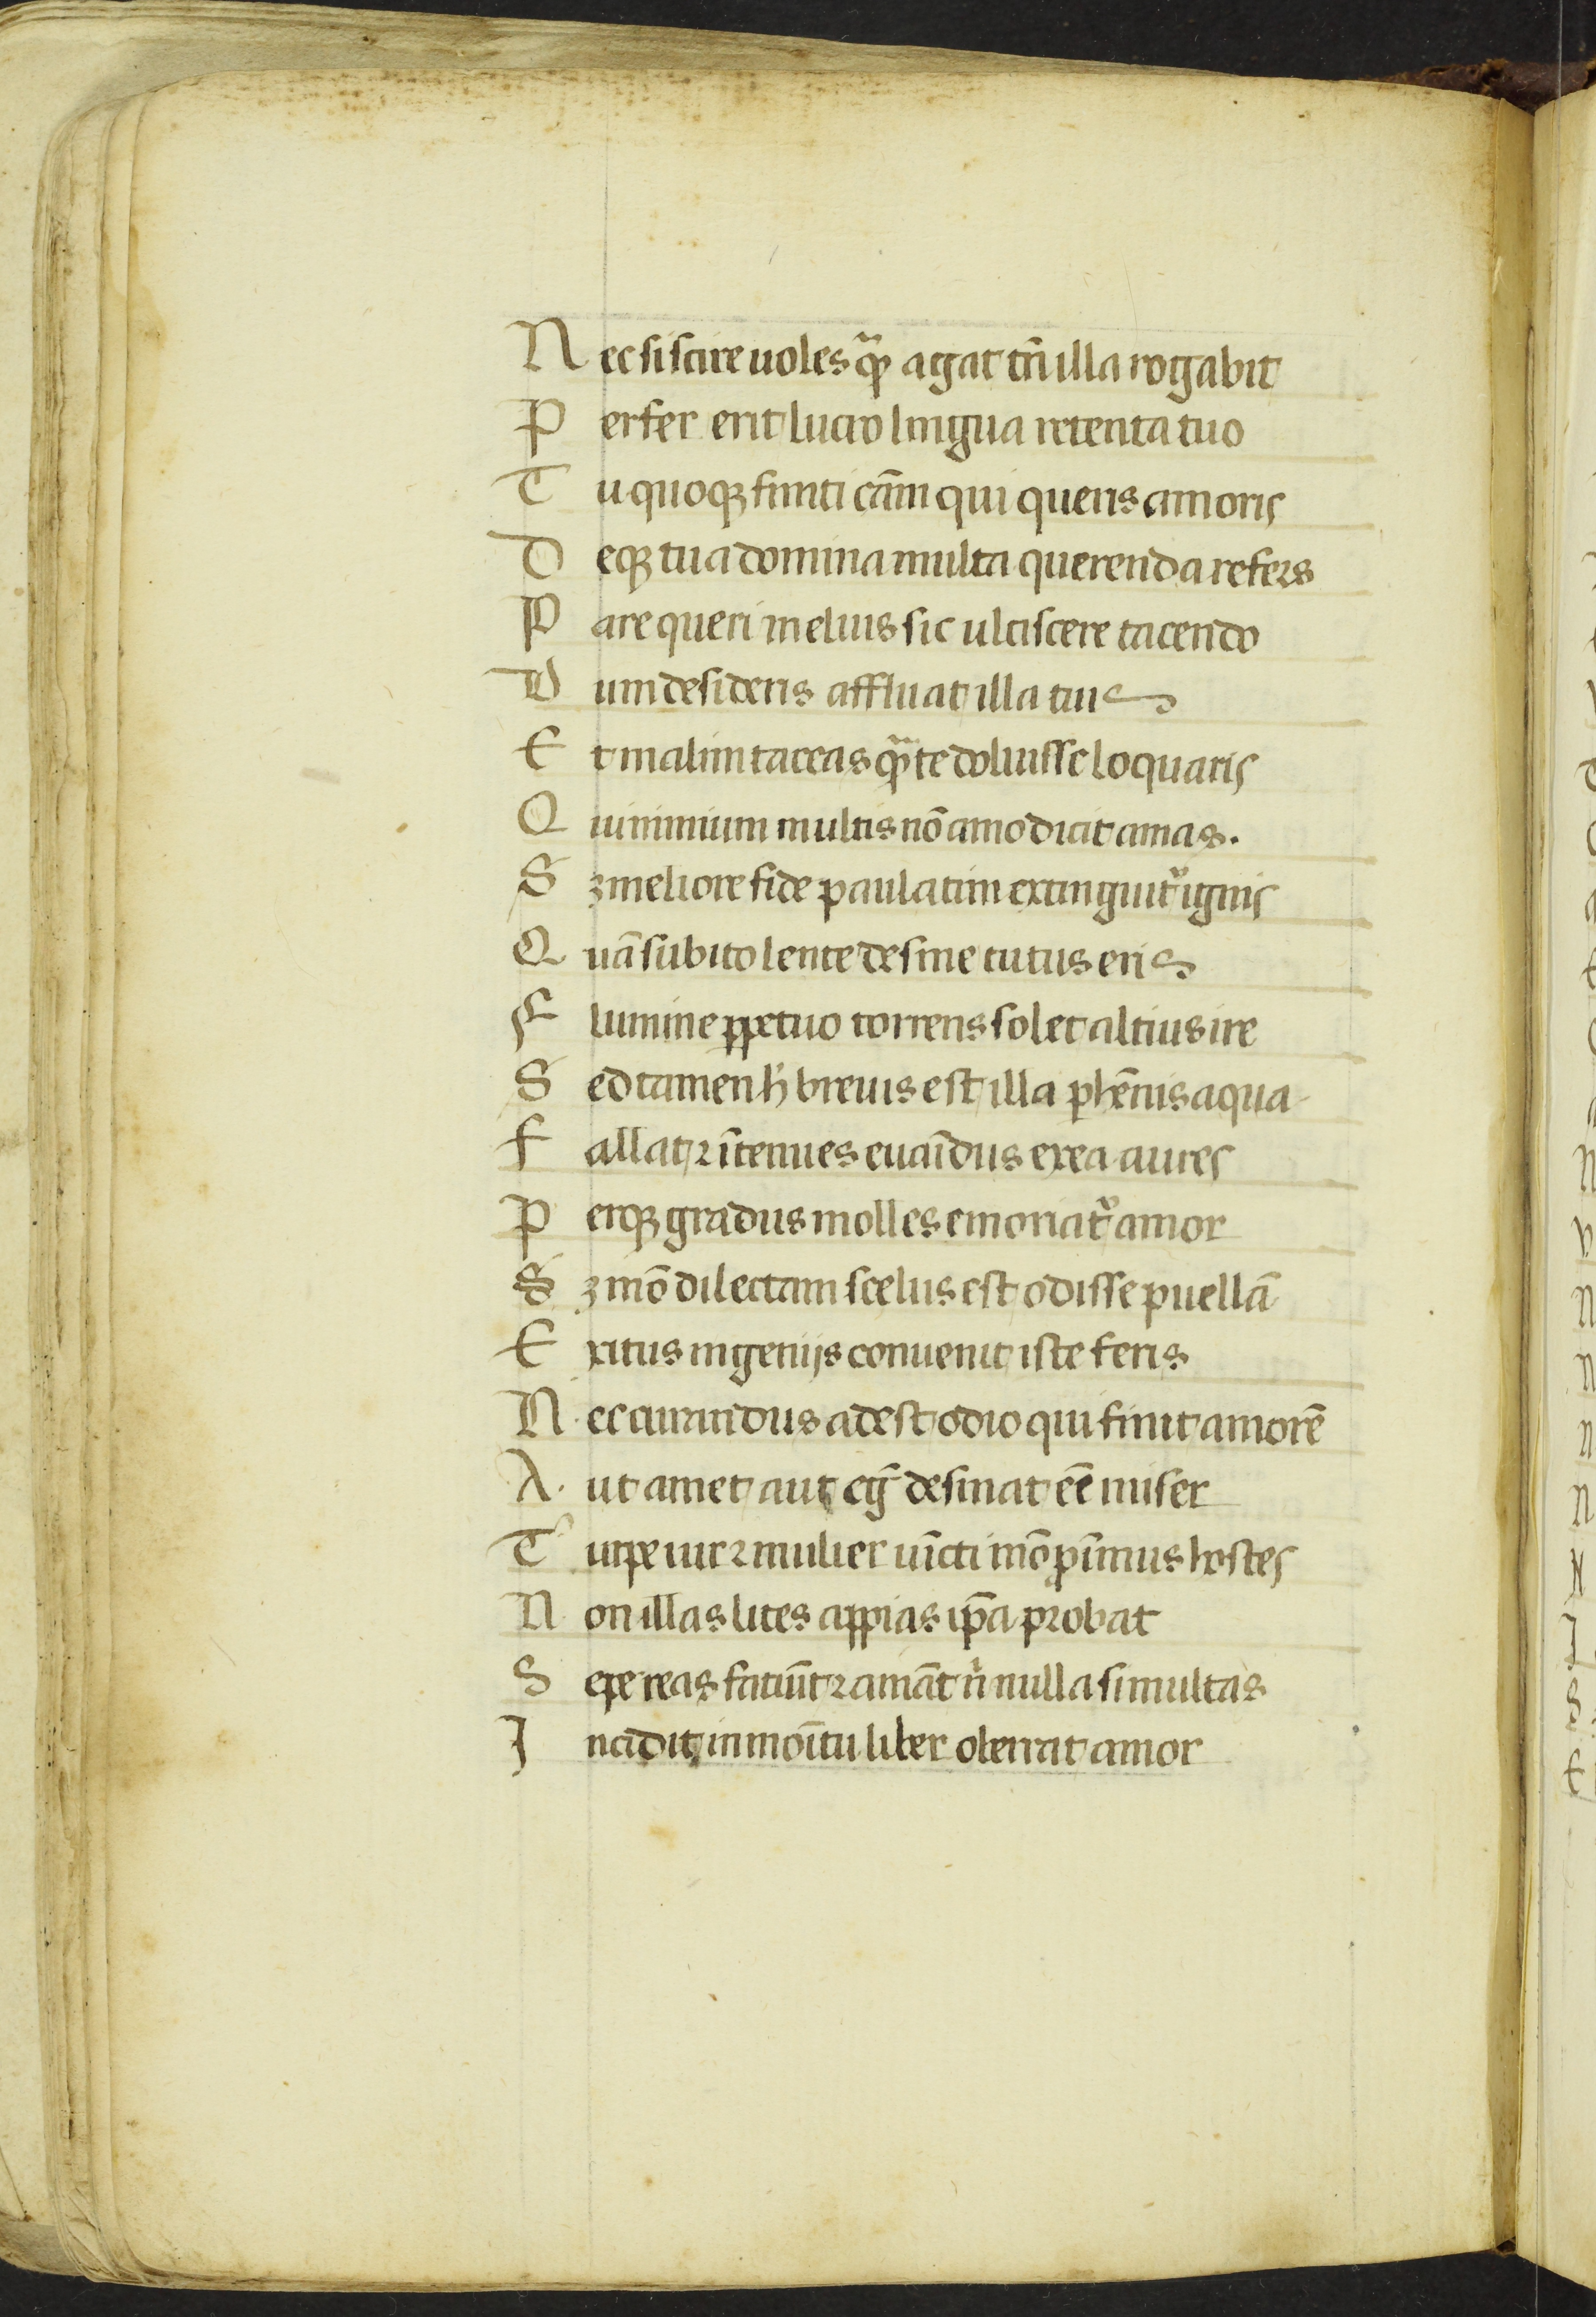 N ec si scire uoles qͣꝫ agat tn̄ illa rogabit
P erfer erit lucro lingua retenta tuo
T u quoqꝫ finiti cām qui queris amoris
D eqꝫ tua domina multa querenda refers
P arce queri melius sic ulciscere tacendo
D um desideris affluat illa tuis
E t malim taceas qͣꝫ te doluisse loquaris
Q ui nimium multis nō amo dicit amas.
S ꝫ meliore fide paulatim extinguitᷣ ignis
Q uā subito lente desine tutus eris
F lumine ꝑpetuo torrens solet altius ire
S ed tamen h̄ breuis est illa ꝑhēnis aqua
F allat ⁊ ī tenues euaīdus exea aures
P erqꝫ gradus molles emoriatᷣ amor
S ꝫ mō dilectam scelus est odisse puellā
E xitus ingenijs conuenit iste feris
N ec curandus adest odio qui finit amorē
A ut amet aut egͥ desinat eē miser
T urpe uir ⁊ mulier uīcti mō ꝓīmus hostes
N on illas lites appias ip̄a probat
S epe reas fatiūt ⁊ amāt ň nulla simultas
I ncidit in moītu liber oberrat amor